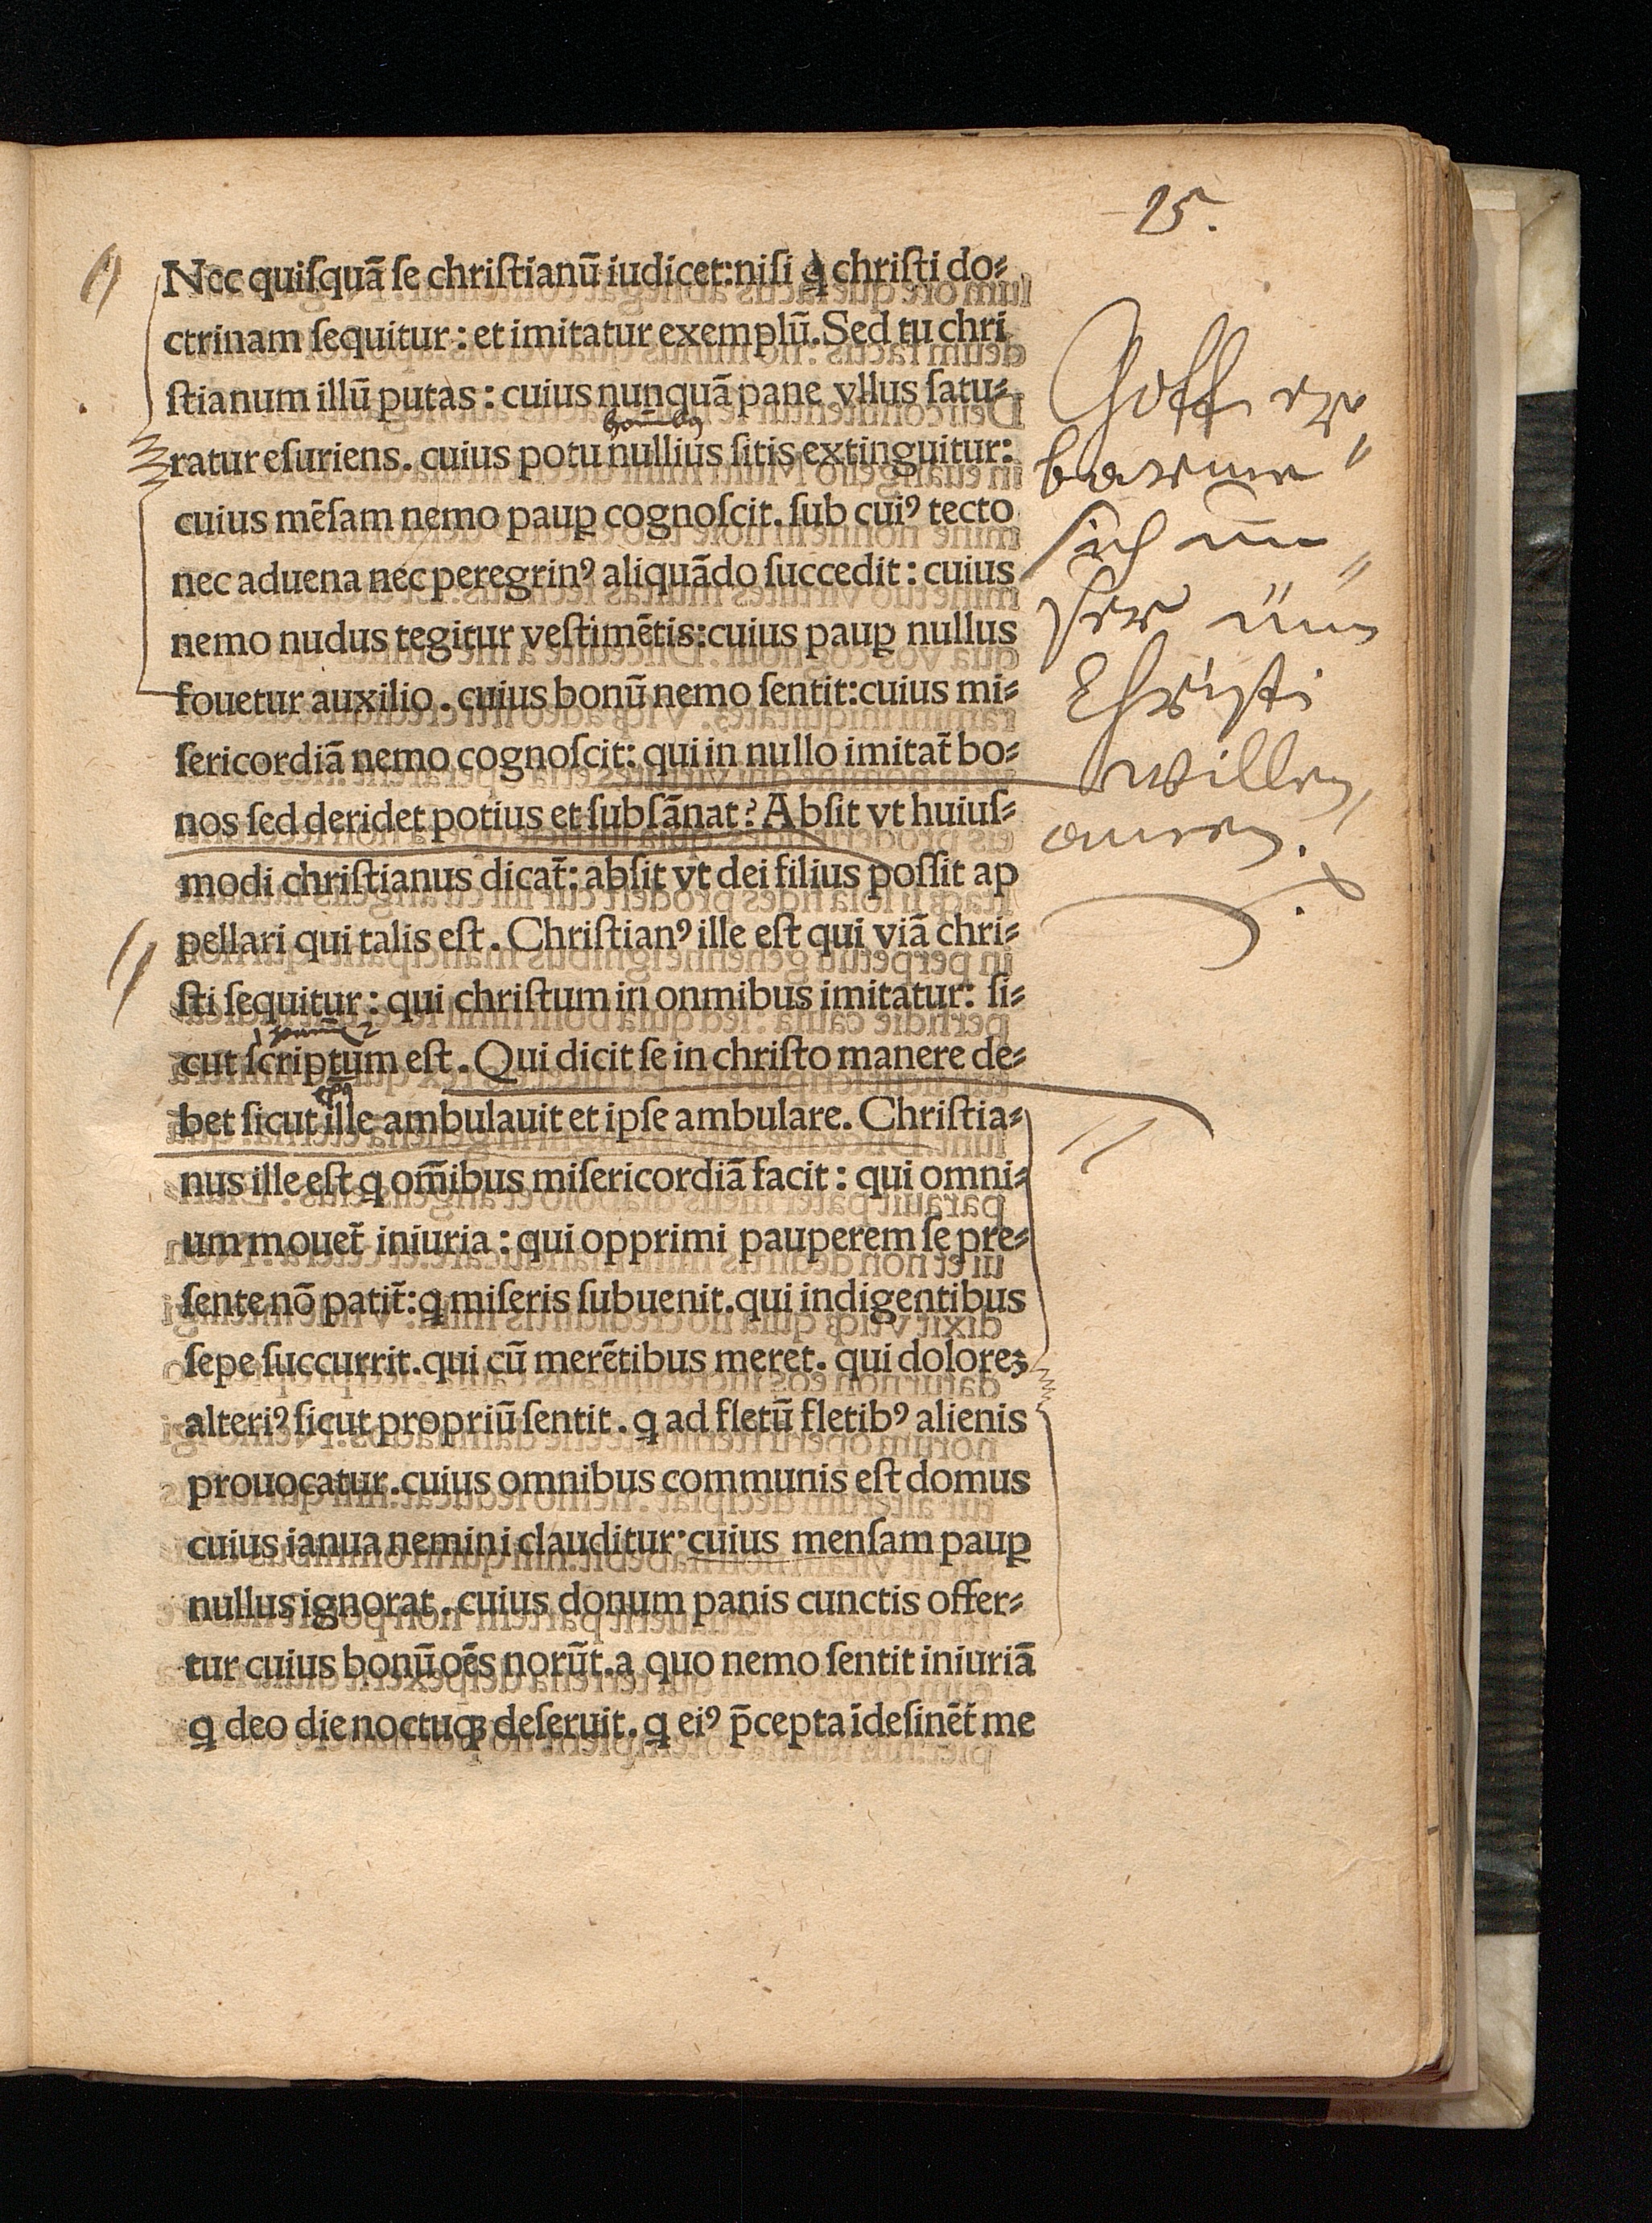 25.
Nec quiſquā ſe chriſtianū iudicet:niſi ꝗ chriſti do⸗
ctrinam ſequitur : et imitatur exemplū. Sed tu chri
ſtianum illū putas : cuius nunquā pane vllus ſatu⸗
ratur eſuriens. cuius potu nullius ſitis extinguitur:
cuius mēſam nemo paup̲ cognoſcit. ſub cuiꝰ tecto
nec aduena nec peregrinꝰ aliquādo ſuccedit : cuius
nemo nudus tegitur veſtimētis:cuius paup̲ nullus
fouetur auxilio. cuius bonū nemo ſentit:cuius mi⸗
ſericordiā nemo cognoſcit: qui in nullo imitat̄ bo⸗
nos ſed deridet potius et ſubſānat? Abſit vt huiuſ⸗
modi chriſtianus dicat̄: abſit vt dei filius poſſit ap
pellari qui talis eſt. Chriſtianꝰ ille eſt qui viā chri⸗
ſti ſequitur : qui chriſtum in onmibus imitatur: ſi⸗
cut ſcriptum eſt. Qui dicit ſe in chriſto manere de⸗
bet ſicut ille ambulauit et ipſe ambulare. Chriſtia⸗
nus ille eſt ꝗ om̄ibus miſericordiā facit : qui omni⸗
um mouet̄ iniuria : qui opprimi pauperem ſe pre⸗
ſente nō patit̄: ꝗ miſeris ſubuenit. qui indigentibus
ſepe ſuccurrit. qui cū merētibus meret. qui doloreꝫ
alteriꝰ ſicut propriū ſentit. ꝗ ad fletū fletibꝰ alienis
prouocatur. cuius omnibus communis eſt domus
cuius ianua nemini clauditur· cuius menſam paup̲
nullus ignorat. cuius donum panis cunctis offer⸗
tur cuius bonū oēs norūt. a quo nemo ſentit iniuriā
ꝗ deo die noctuqꝫ deſeruit. ꝗ eiꝰ p̄cepta īdeſinēt̄ me
Gott er
barme
sich un
ser um
Christi
willen
amen.